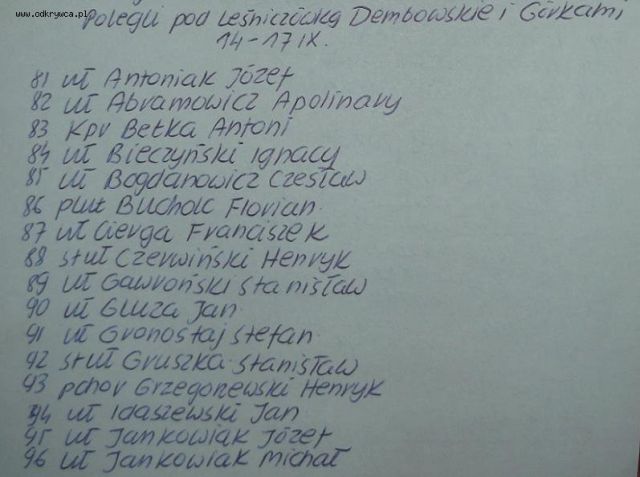 www.odkrywca.pl
Polegli pod Leśniczówką Dembowskie i Górkami
14-17 IX.
81 uł Antoniak Józef
82 uł Abramowicz Apolinary
83 Kpr Bełka Antoni
84 uł Bieczyński Ignacy
85 uł Bogdanowicz Czesław
86 plut Bucholc Florian
87 uł Cierga Franciszek
88 st uł Czerwiński Henryk
89 uł Gawroński Stanisław
90 uł Gluza Jan
91 uł Gronostaj Stefan
92 st uł Gruszka Stanisław
93 pchor Grzegorzewski Henryk
94 uł Idaszewski Jan
95 uł Jankowiak Józef
96 uł Jankowiak Michał